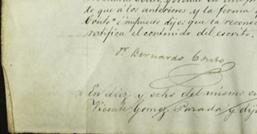 do que a los anteriores, y la forma
Conto é impuesto dijo: que la recono
ratifica el contenido del escrito.
Bernardo
En diez y ocho del mismo
Vicente Gomez Parada y dijo